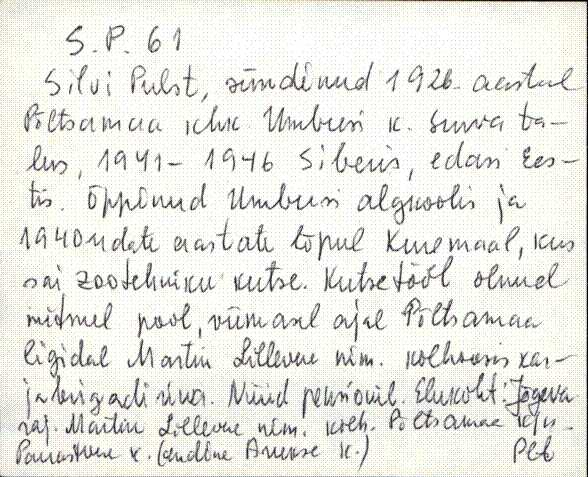 S. P. 61
Silvi Pulst, sündinud 1926. aastal
Põltsamaa khk. Umbusi k. Surva ta-
lus, 1941 - 1946 Siberis, edasi Ees-
tis. Õppinud Umbusi algkoolis ja
1940ndate aastate lõpul Kuremaal, kus
sai zootehniku kutse. Kutsetööl olnud
mitmel pool, viimasel ajal Põltsamaa
ligidal Martin Lillevere nim. kolhoosis kar-
jabrigadirina. Nüüd pensionil. Elukoht: Jõgeva
raj. Martin Lillevere nim. kolh. Põltsamaa k/n.
Pauastvere k. (endine Arukse k.)